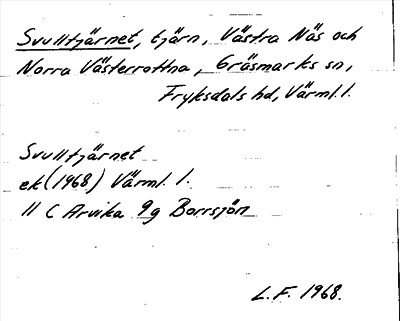 Svulltjärnet, tjärn, Västra Näs och
Norra Västerrottna, Gräsmarks sn,
Fryksdals hd, Värml. l.
Svulltjärnet
ek (1968) Värml. l.
11 C Arvika 9g Borrsjön
L.F. 1968.